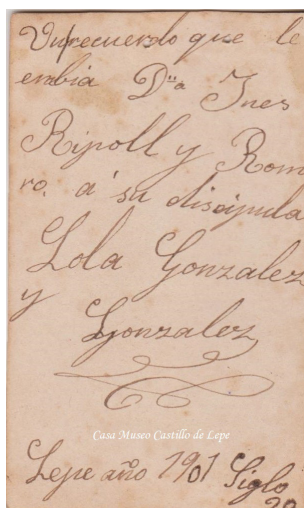 Un recuerdo que le
enbia Dña Ines
Ripoll y Rom
ro, á su discipula
Lola Gonzalez
y
Gonzalez
Casa Museo Castillo de Lepe
Lepe año 1901 Siglo
20